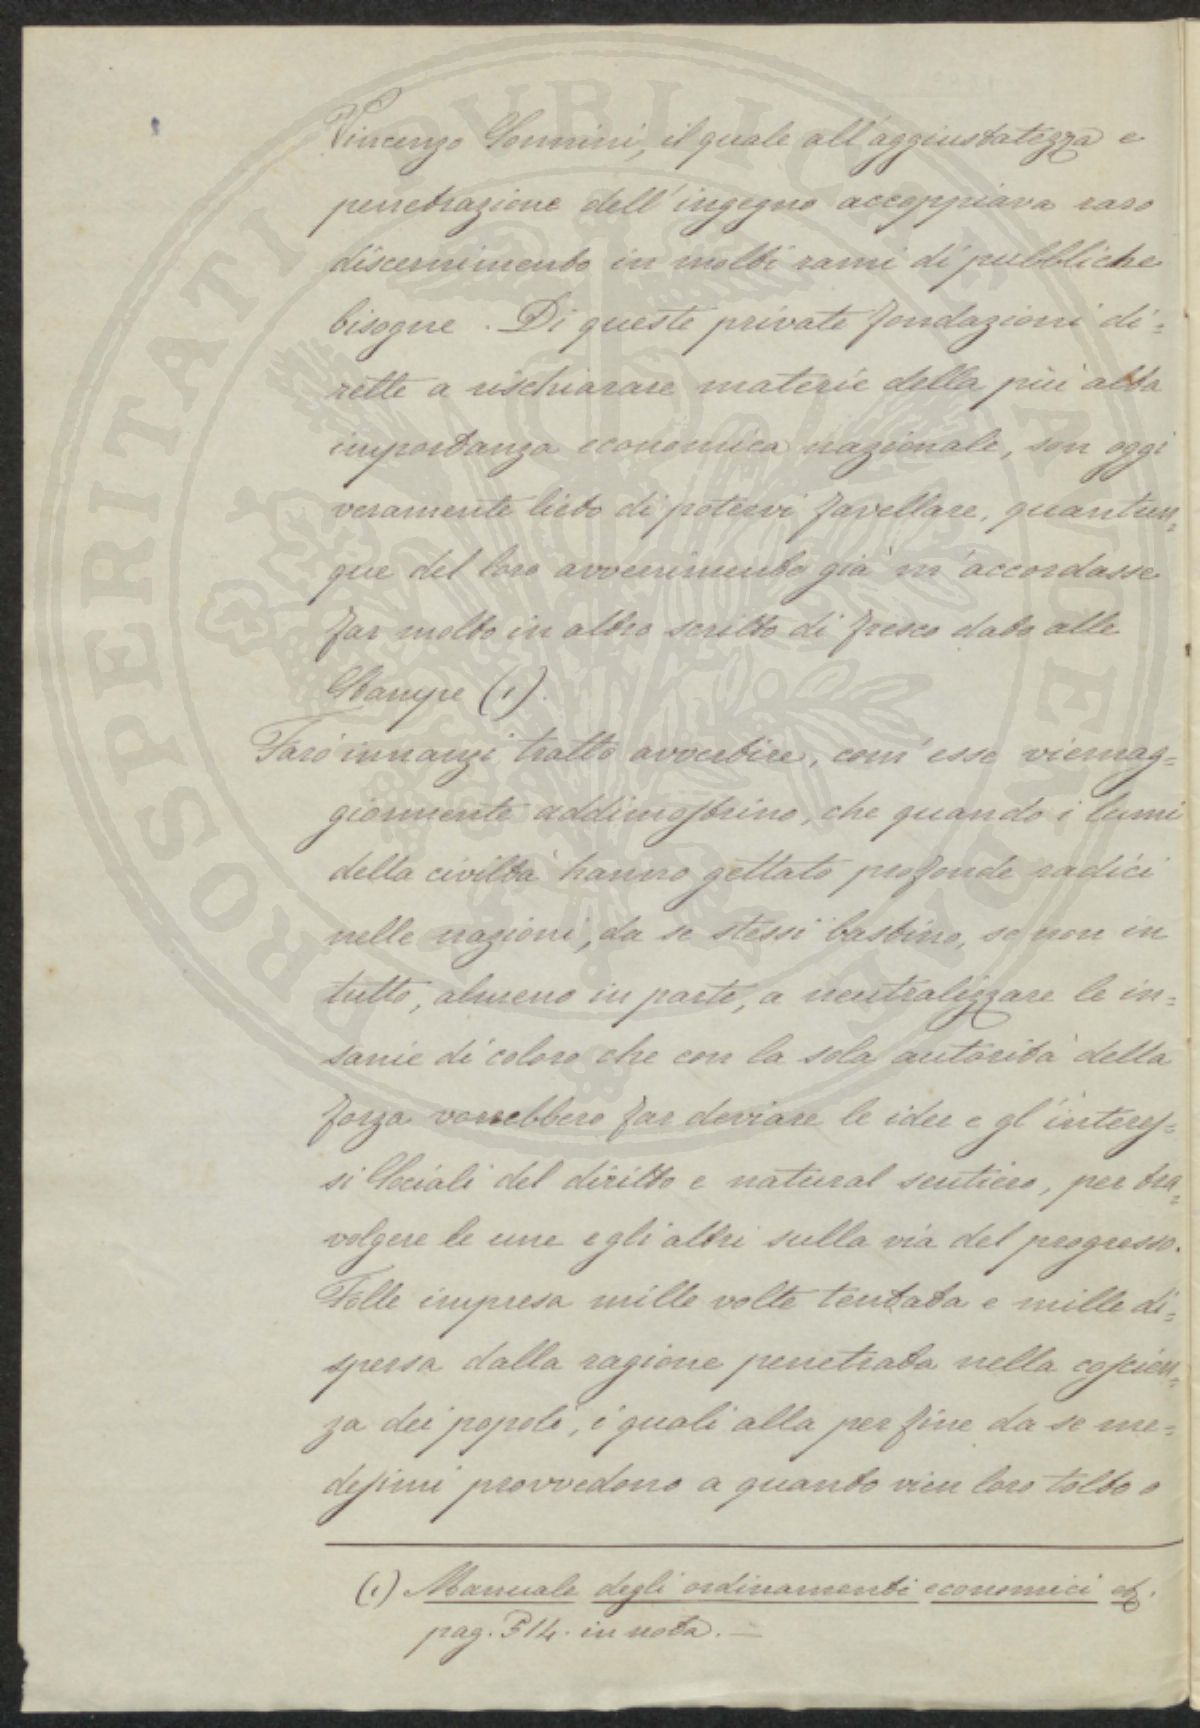 Vincenzo Sonnini, il quale all'aggiustatezza e
penetrazione dell'ingegno accoppiava raro
discernimento in molti rami di pubbliche
bisogne. Di queste private fondazioni di=
rette a rischiarare materie della più alta
importanza economica nazionale, son oggi
veramente lieto di potervi favellare, quantun=
que del loro avvenimento già m'accordasse
far molto in altro scritto di fresco dato alle
Stampe (1).
Farò innanzi tratto avvertire, com'esse viemag=
giormente addimostrino, che quando i lumi
della civiltà hanno gettato profonde radici
nelle nazioni, da se stessi bastino, se non in
tutto, almeno in parte, a neutralizzare le in=
sanie di coloro che con la sola autorità della
forza vorrebbero far deviare le idee e gl'interes=
si Sociali del diritto e natural sentiero, per tra=
volgere le une e gli altri sulla via del progresso.
Folle impresa mille volte tentata e mille di=
spersa dalla ragione penetrata nella coscien=
za dei popoli, i quali alla per fine da se me=
desimi provvedono a quanto vien loro tolto o
(1) Manuale degli ordinamenti economici
pag. 514. in nota. =
PROSPERITATI PVBLICAE AVGENDAE